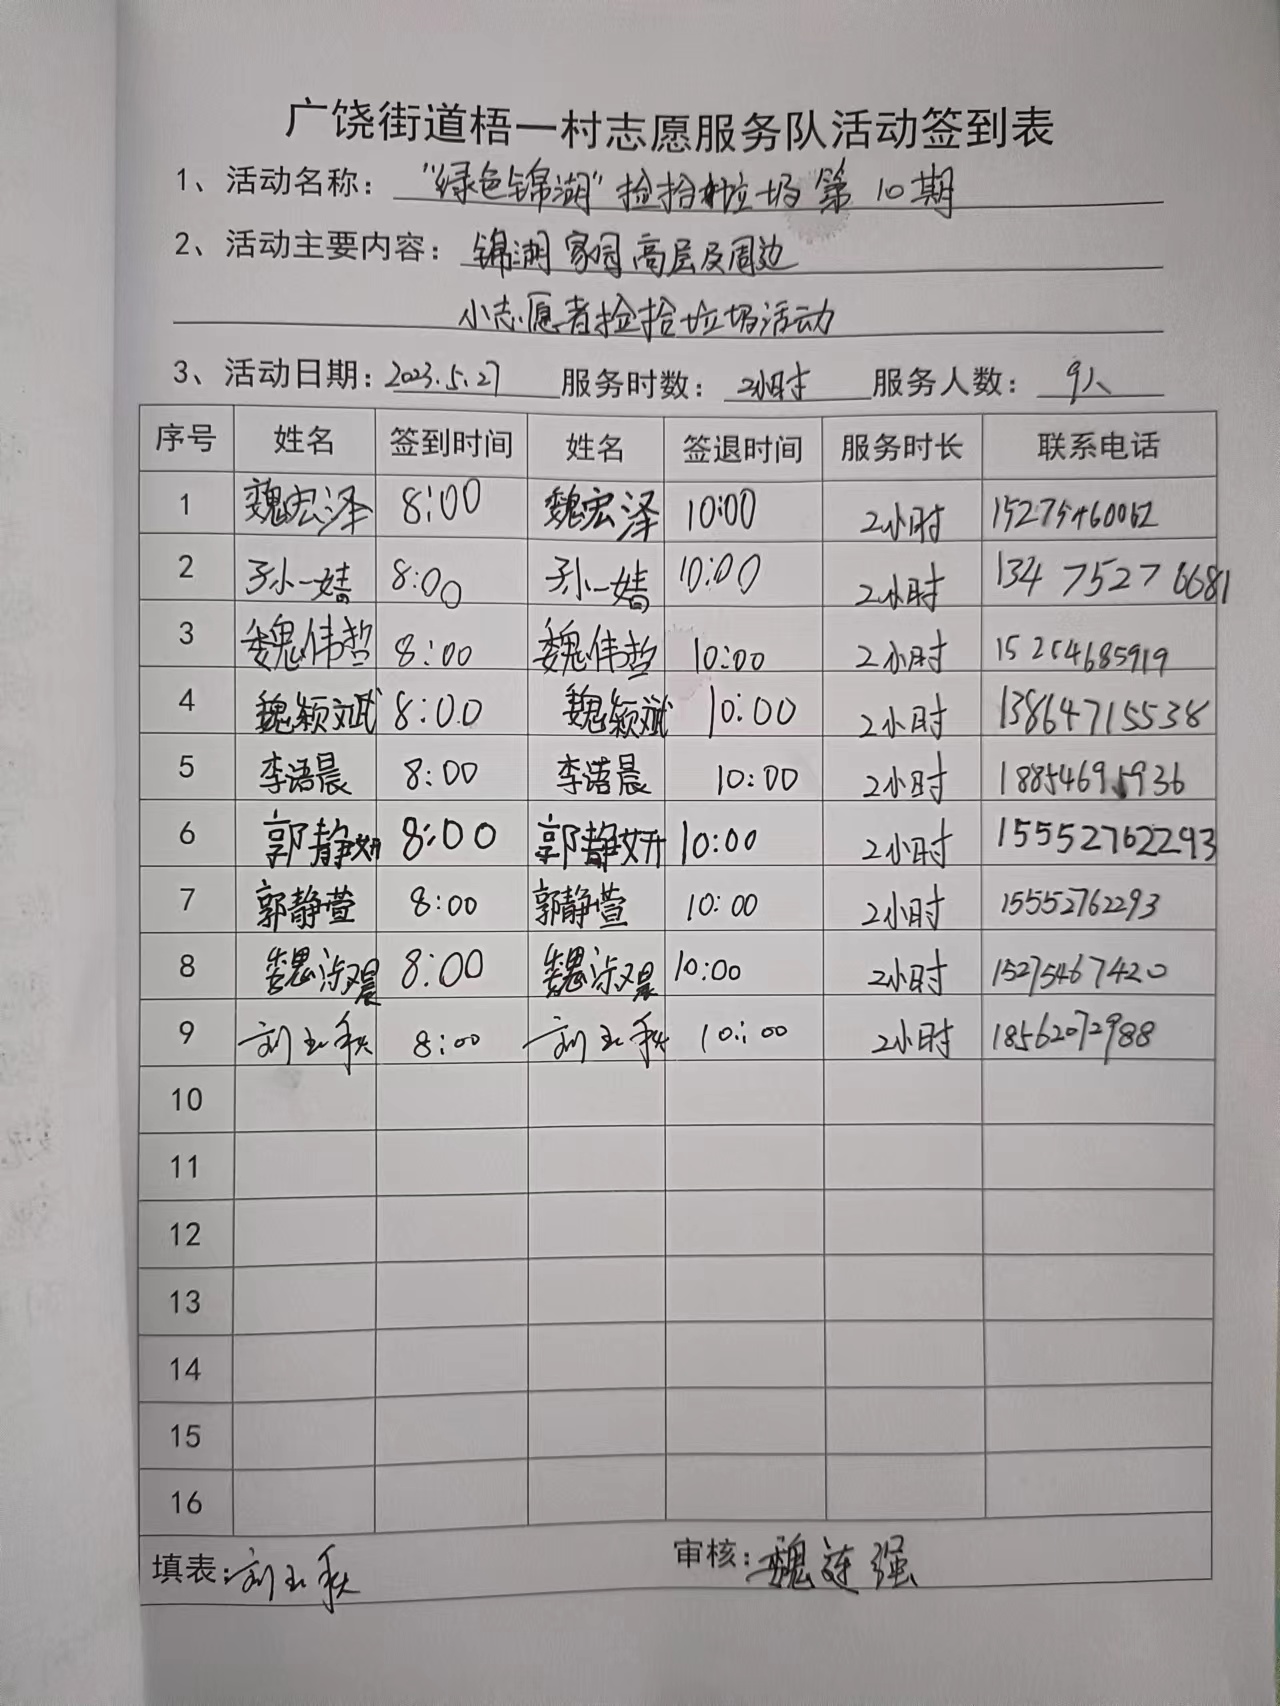 广饶街道梧一村志愿服务队活动签到表
1、活动名称：“绿色锦湖”捡拾垃圾 第10期
2、活动主要内容：锦湖家园高层及周边
小志愿者捡拾垃圾活动
3、活动日期：2023.5.27 服务时数：2小时 服务人数：9人
序号 姓名 签到时间 姓名 签退时间 服务时长 联系电话
1 魏宏泽 8:00 魏宏泽 10:00 2小时 15275460062
2 孙一婧 8:00 孙一婧 10:00 2小时 134 7527 6681
3 魏伟哲 8:00 魏伟哲 10:00 2小时 15264685919
4 魏颖斌 8:00 魏颖斌 10:00 2小时 13864715538
5 李诺晨 8:00 李诺晨 10:00 2小时 18854695936
6 郭静妍 8:00 郭静妍 10:00 2小时 15552762293
7 郭静萱 8:00 郭静萱 10:00 2小时 15552762293
8 魏 8:00 魏 10:00 2小时 15275467420
9 刘玉秋 8:00 刘玉秋 10:00 2小时 18562072988
10
11
12
13
14
15
16
填表：刘玉秋 审核：魏连强